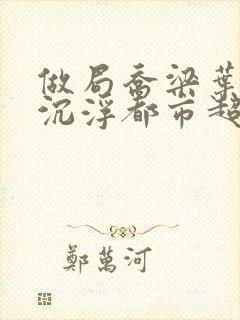 做局喬梁葉
沉浮都市超
鄭萬河